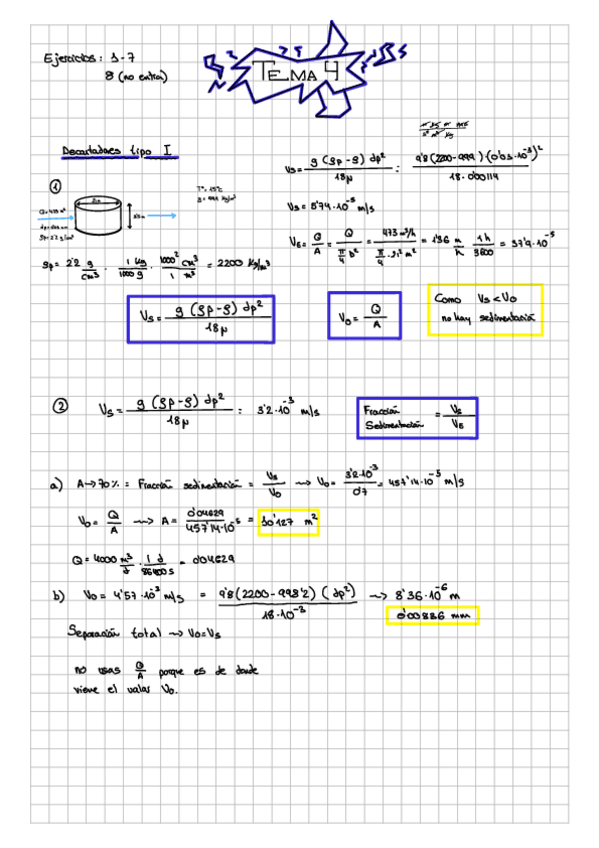 Ejercicios: 1-7
8 (no entra)
TEMA 4
Decantadores tipo I
①
Vs = g (ρp - ρ) dp² / 18μ = 9'8 (2200 - 999) (0'03·10⁻³)² / 18·0'00114
Vs = 5'74·10⁻⁵ m/s
V₀ = Q / A = Q / (π/4 D²) = 473 m³/h / (π/4 · 21² m²) = 1'36 m/h · 1h / 3600 = 37'9·10⁻⁵
ρp = 2'2 g/cm³ · 1 kg / 1000 g · 1000² cm³ / 1 m³ = 2200 kg/m³
Vs = g (ρp - ρ) dp² / 18μ
V₀ = Q / A
Como Vs < V₀
no hay sedimentación
② Vs = g (ρp - ρ) dp² / 18μ = 3'2·10⁻³ m/s
Fracción Sedimentación = Vs / V₀
a) A → 70% = Fracción sedimentación = Vs / V₀ → V₀ = 3'2·10⁻³ / 0'7 = 457'14·10⁻⁵ m/s
V₀ = Q / A → A = 0'04629 / 457'14·10⁻⁵ = 10'127 m²
Q = 4000 m³/d · 1 d / 86400 s = 0'04629
b) V₀ = 4'57·10⁻³ m/s = 9'8 (2200 - 998'2) (dp²) / 18·10⁻³ → 8'36·10⁻⁶ m
0'00836 mm
Separación total → V₀ = Vs
no usas Q / A porque es de donde
viene el valor V₀.